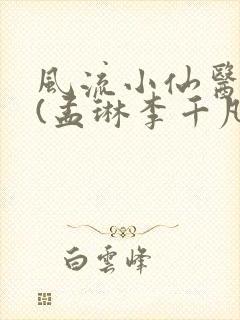 風流小仙醫
(孟琳李千凡
白雲峰